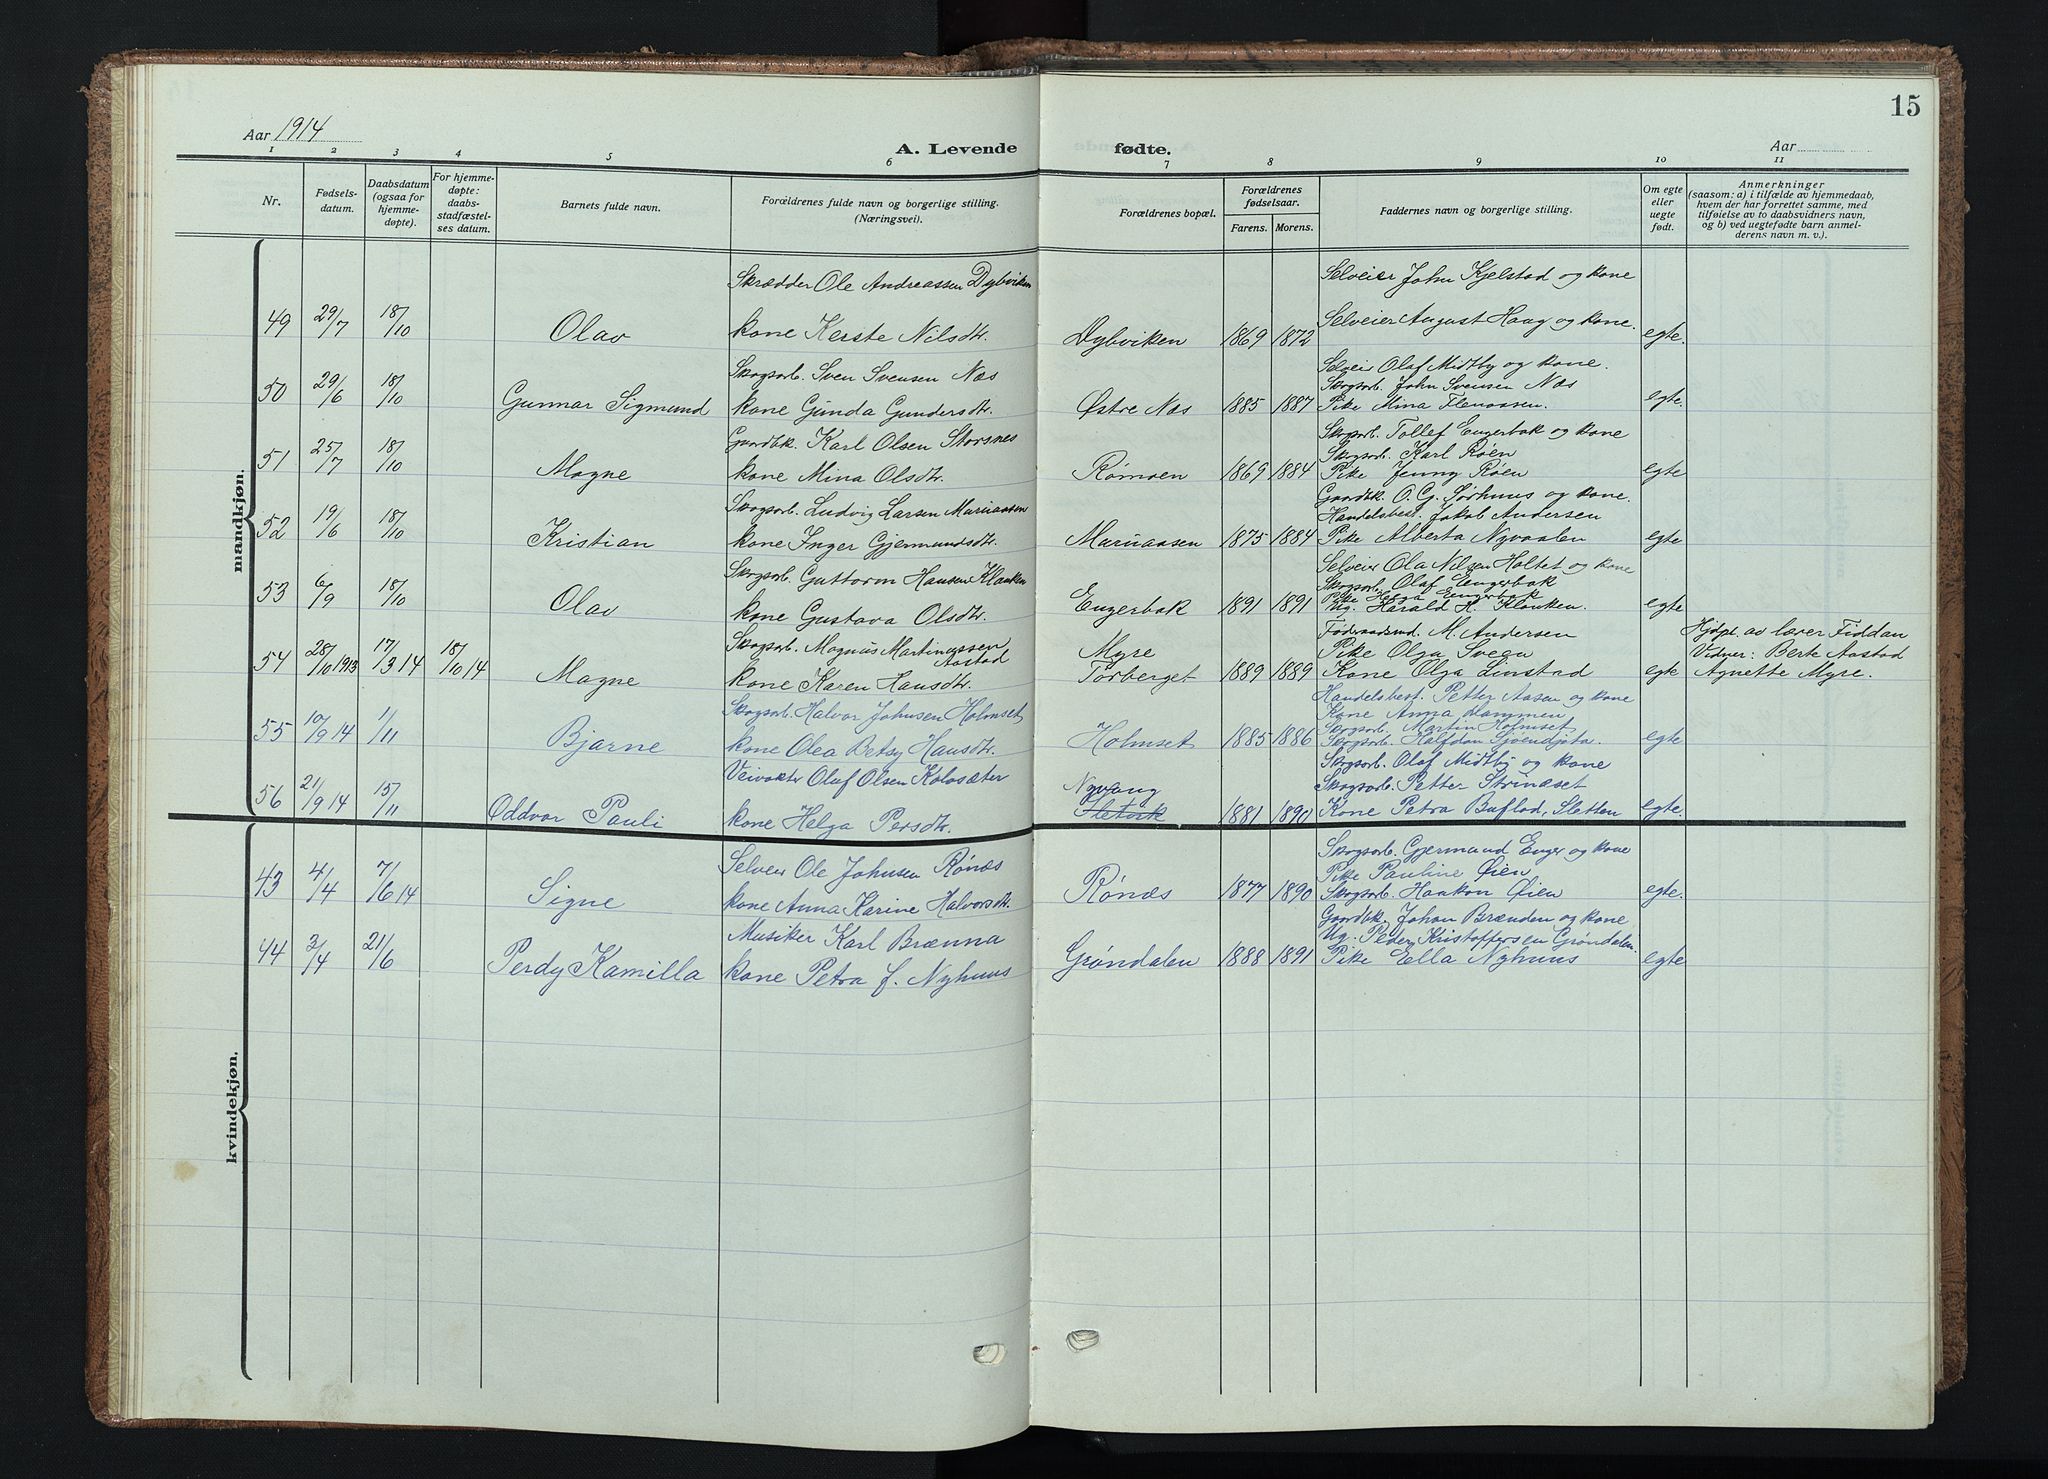 15
Aar 1914
A. Levende fødte.
Aar
1 2 3 4 5 6 7 8 9 10 11
Nr.
Fødsels-
datum.
Daabsdatum
(ogsaa for
hjemme-
døpte).
For hjemme-
døpte:
daabs-
stadfæstel-
ses datum.
Barnets fulde navn.
Forældrenes fulde navn og borgerlige stilling.
(Næringsvei).
Forældrenes bopæl.
Forældrenes
fødselsaar.
Farens. Morens.
Faddernes navn og borgerlige stilling.
Om egte
eller
uegte
født.
Anmerkninger
(saasom: a) i tilfælde av hjemmedaab,
hvem der har forrettet samme, med
tilføielse av to daabsvidners navn,
og b) ved uegtefødte barn anmel-
derens navn m. v.).
mandkjøn.
Skrædder Ole Andreassen Dybviken
Selveier John Kjelstad og kone
Selveier August Haag og kone.
49 29/7 18/10 Olav kone Kerste Nilsdtr. Dybviken 1869 1872 egte.
Skogsarb. Sven Svensen Næs
Selveier Olaf Midtby og kone.
Skogsarb. John Svensen Næs
50 29/6 18/10 Gunnar Sigmund kone Gunda Gundersdtr. Østre Næs 1885 1887 Pike Mina Flenaasen. egte.
Gaardbk. Karl Olsen Storsnes
Skogsarb. Tollef Engerbak og kone
Skogsarb. Karl Røen
51 25/7 18/10 Magne kone Mina Olsdtr. Rømoen 1869 1884 Pike Jenny Røen egte
Gaardbk. O. G. Sørhuus og kone.
Skogsarb. Ludvig Larsen Maruaasen
Handelsbest. Jakob Andersen
52 19/6 18/10 Kristian kone Inger Gjermundsdtr. Maruaasen 1875 1884 Pike Alberta Nyvaalen egte
Skogsarb. Guttorm Hansen Klanken
Selveier Ola Nilsen Holtet og kone
Skogsarb. Olaf Engerbak
Pike Helga Engerbak
53 6/9 18/10 Olav kone Gustava Olsdtr. Engerbak 1891 1891 Ug. Harald H. Klanken. egte
Skogsarb. Magnus Martinussen
Aastad
Føderaadsmd. M. Andersen
Hjdpt. av lærer Fiddan
Myre
Pike Olga Sveen
Vidner: Berte Aastad
54 28/10 1913 17/3 14 18/10 14 Magne kone Karen Hansdtr. Tørberget 1889 1889 Kone Olga Linstad egte Agnette Myre.
Skogsarb. Halvor Johnsen Holmset
Handelsbest. Petter Aasen og kone
Kone Anna Lammen
Skogsarb. Martin Holmset
55 10/9 14 1/11 Bjarne kone Olea Betsy Hansdtr. Holmset 1885 1886 Skogsarb. Halfdan egte
Veivokter Olaf Olsen Kolosæter
Skogsarb. Olaf Midtby og kone
Nyvang
Skogsarb. Petter Strinæset
56 21/9 14 15/11 Oddvar Pauli kone Helga Persdtr. 1881 1890 Kone Petra Buflod, Sletten egte.
kvindekjøn.
Selveier Ole Johnsen Rønæs
Skogsarb. Gjermund Enger og kone
Pike Pauline Øien
43 4/4 7/6 14 Signe kone Anna Karine Halvorsdtr. Rønæs 1877 1890 Skogsarb. Haakon Øien egte.
Gaardbk. Johan Brænden og kone
Musiker Karl Brænna
Ug. Peder Kristoffersen Grøndalen
44 3/4 21/6 Perdy Kamilla kone Petra f. Nyhuus Grøndalen 1888 1891 Pike Ella Nyhuus egte